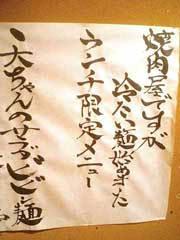 焼肉屋ですが
冷たい麺始めました
ランチ限定メニュー
大ちゃんの ビビン麺